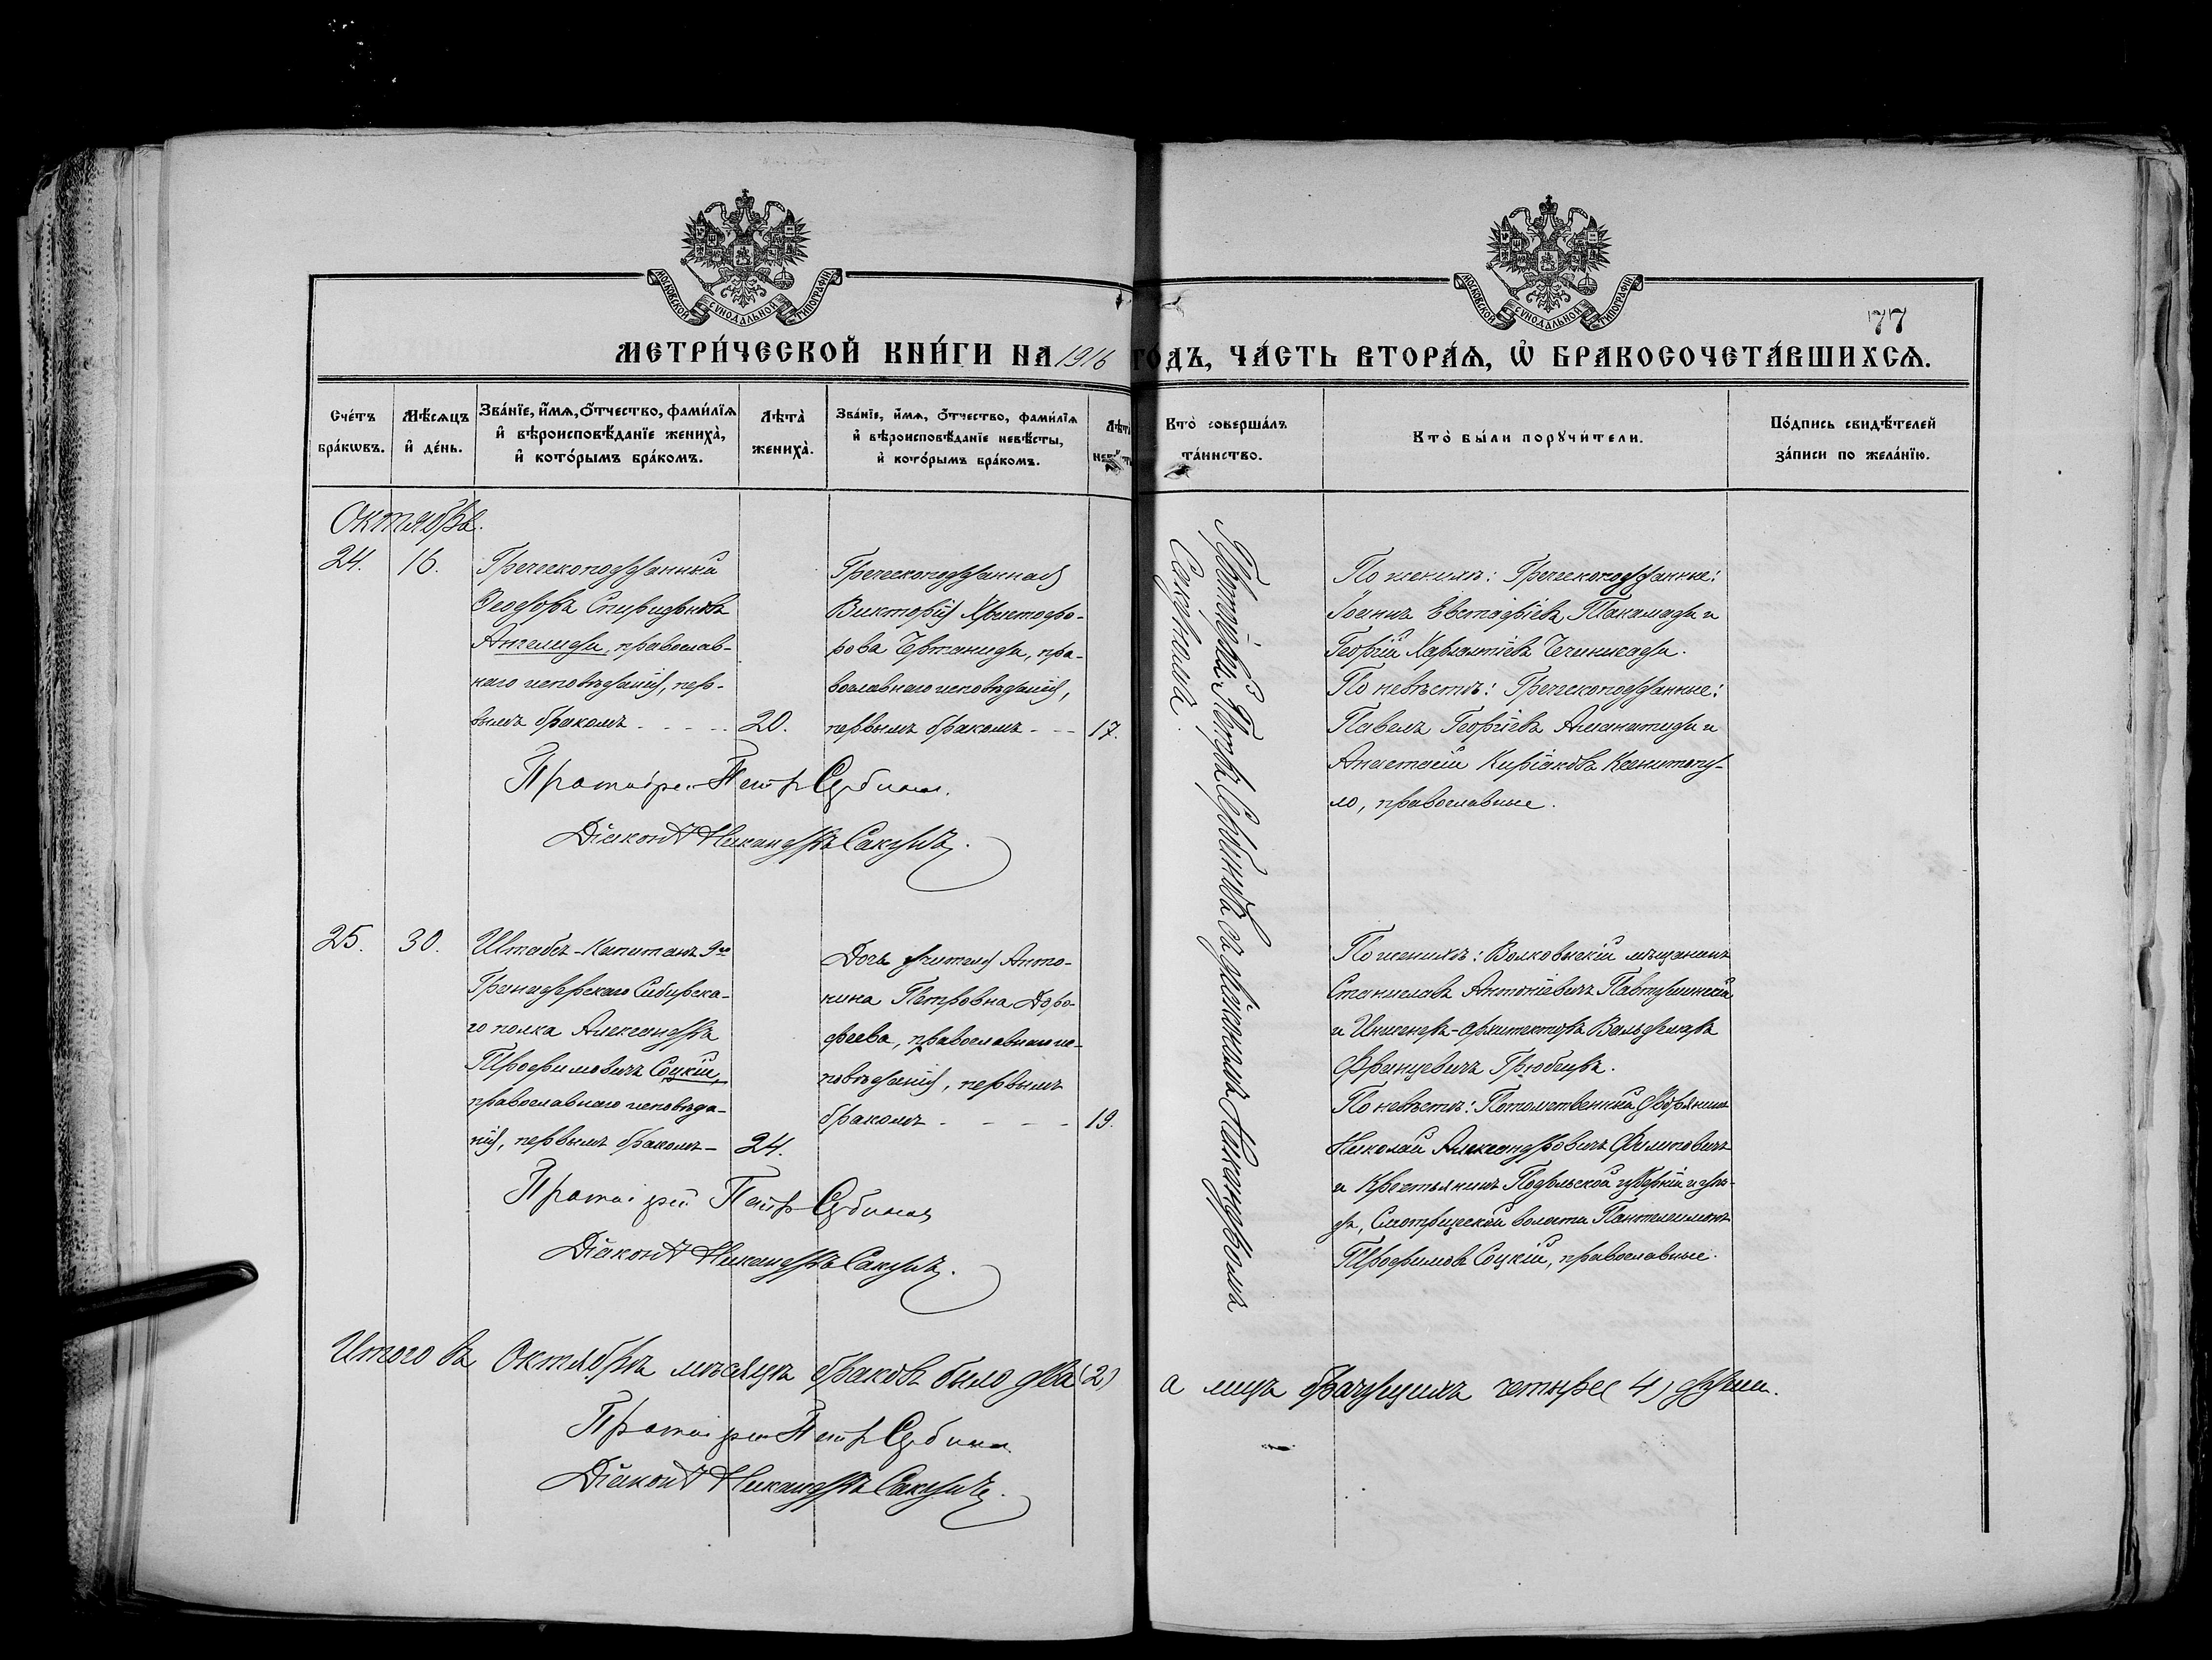 МОСКОВСКОЙ СѴНОДАЛЬНОЙ ТИПОГРАФІИ
МОСКОВСКОЙ СѴНОДАЛЬНОЙ ТИПОГРАФІИ
77
МЕТРИ́ЧЕСКОЙ КНИ́ГИ НА 1916 ГОДЪ, ЧА́СТЬ ВТОРА́Ѧ, Ѽ БРАКОСОЧЕТА́ВШИХСѦ.
Сче́тъ бра́кѡвъ.
Мѣ́сѧцъ и҆ де́нь.
Зва́нїе, и҆́мѧ, о҆́тчество, фами́лїѧ
и҆ вѣроисповѣ́данїе жениха̀,
и҆ кото́рымъ бра́комъ.
Лѣта̀ жениха̀.
Зва́нїе, и҆́мѧ, о҆́тчество, фами́лїѧ
и҆ вѣроисповѣ́данїе невѣ́сты,
и҆ кото́рымъ бра́комъ.
Лѣта̀
Кто̀ соверша́лъ
та́инство.
Кто̀ бы́ли порꙋчи́тели.
По́дпись свидѣ́телей
за́писи по жела́нїю.
Октябрь.
24.
16.
Греческоподданный
Ѳеодоръ Спиридоновъ
Ангелиди, православ-
наго исповѣданія, пер-
вымъ бракомъ
20.
Греческоподданная
Викторія Христофо-
рова , пра-
вославнаго исповѣданія,
первымъ бракомъ
17.
Протоіерей Петръ Сербиновъ съ діакономъ Никандромъ
По женихѣ: Греческоподданные:
Іоаннъ Евстафіевъ и
Георгій Харлампіевъ
По невѣстѣ: Греческоподданные:
Павелъ Георгіевъ Аманатиди и
Анастасій Киріаковъ Ксенитопу-
ло, православные.
Протоіерей Петръ Сербиновъ
Діаконъ Никандръ
25.
30.
Штабсъ-Капитанъ 9го
Гренадерскаго Сибирска-
го полка Александръ
Трофимовичъ Соцкій,
православнаго исповѣда-
нія, первымъ бракомъ
24.
Дочь учителя Анто-
нина Петровна Доро-
феева, православнаго ис-
повѣданія, первымъ
бракомъ
19.
По женихѣ: Волковыскій мѣщанинъ
Станиславъ Антоніевичъ
и Инженеръ-архитекторъ Вальдемаръ
Францевичъ
По невѣстѣ: Потомственный дворянинъ
Николай Александровичъ Филиповичъ
и крестьянинъ Подольской губерніи и уѣз-
да, Смотричской волости Пантелеимонъ
Трофимовъ Соцкій, православные.
Протоіерей Петръ Сербиновъ
Діаконъ Никандръ
Итого въ Октябрѣ мѣсяцѣ браковъ было два (2)
а лицъ брачущихъ четыре (4) души.
Протоіерей Петръ Сербиновъ
Діаконъ Никандръ